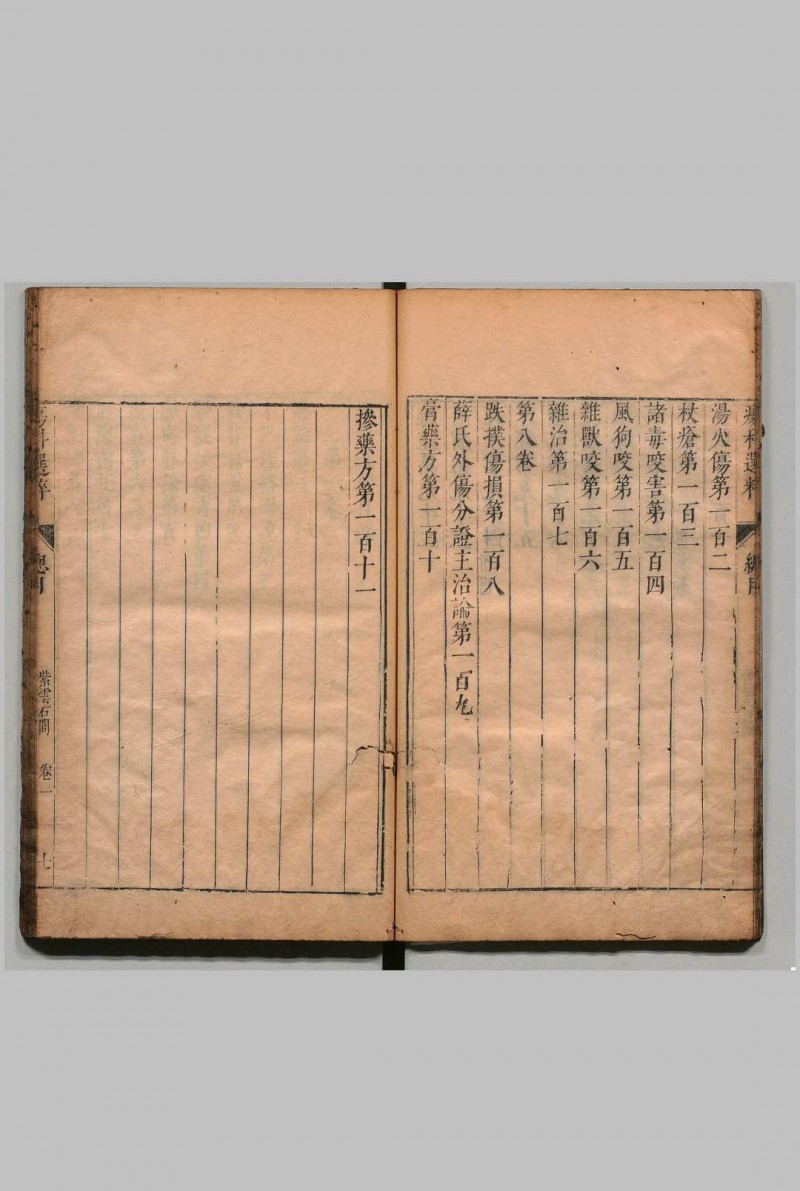 湯火傷第一百二
杖瘡第一百三
諸毒咬害第一百四
風狗咬第一百五
雜獸咬第一百六
雜治第一百七
第八卷
跌撲傷損第一百八
薛氏外傷分證主治論第一百九
膏藥方第一百十
摻藥方第一百十一
選粹
總目
紫雲石間
卷一